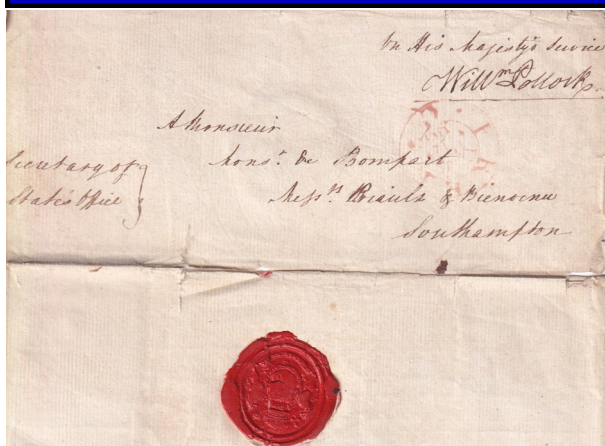 On His Majesty's Service
Will^m Pollock
A Monsieur
Mons^r. de Bompart
Mess^rs. & Bienvenu
Southampton
Secretary of
State's Office